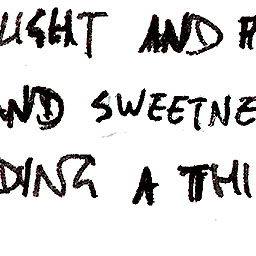 UGHT AND A
AND SWEETNE
DING A THI